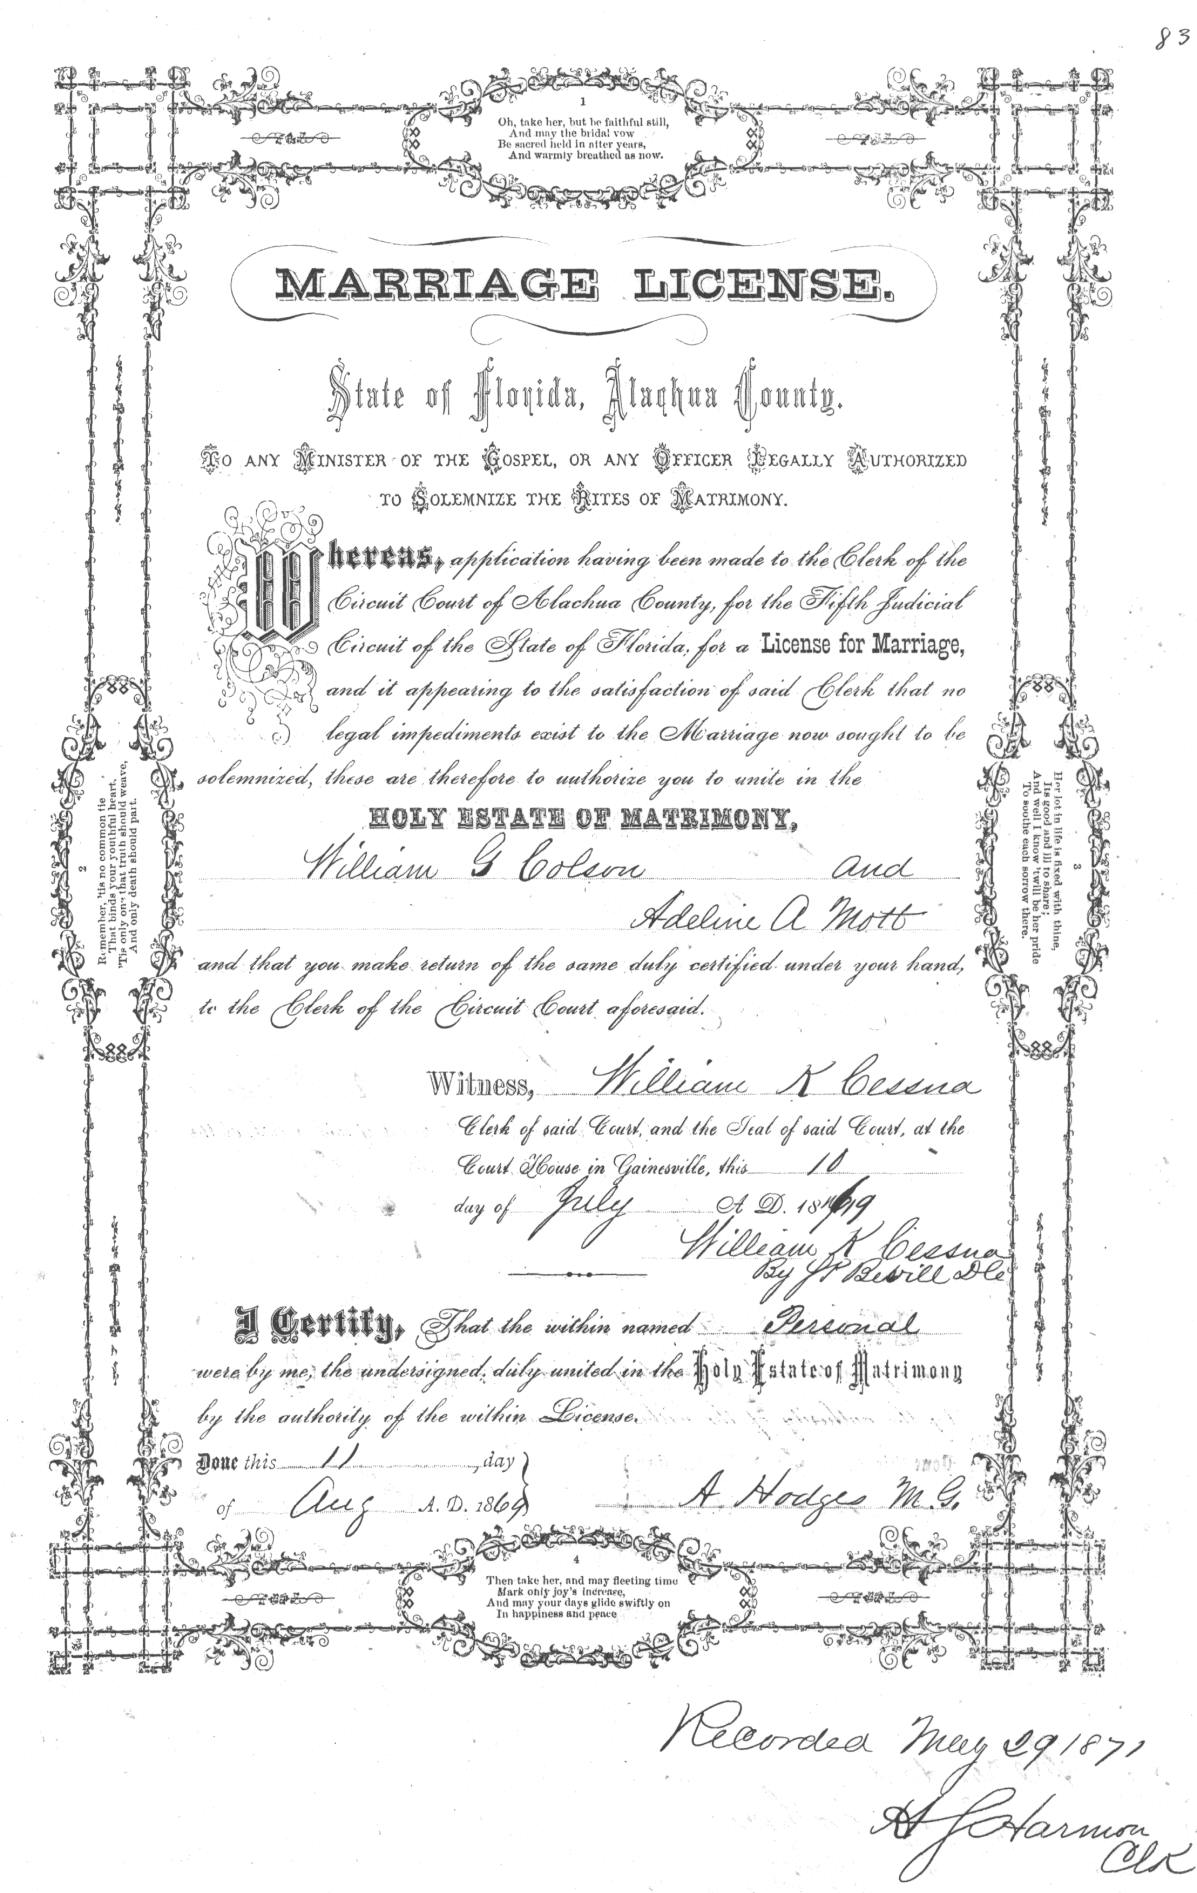 83
1
Oh, take her, but be faithful still,
And may the bridal vow
Be sacred held in after years,
And warmly breathed as now.
MARRIAGE LICENSE.
State of Florida, Alachua County.
To any Minister of the Gospel, or any Officer Legally Authorized
to Solemnize the Rites of Matrimony.
Whereas, application having been made to the Clerk of the
Circuit Court of Alachua County, for the Fifth Judicial
Circuit of the State of Florida, for a License for Marriage,
and it appearing to the satisfaction of said Clerk that no
legal impediments exist to the Marriage now sought to be
solemnized, these are therefore to authorize you to unite in the
HOLY ESTATE OF MATRIMONY,
William G Colson and
Adeline A Mott
and that you make return of the same duly certified under your hand,
to the Clerk of the Circuit Court aforesaid.
Witness, William K Cessna
Clerk of said Court, and the Seal of said Court, at the
Court House in Gainesville, this 10
day of July A D. 1869
William K Cessna
By J P Bevill D Cl
I Certify, That the within named Personal
were by me, the undersigned, duly united in the Holy Estate of Matrimony
by the authority of the within License.
Done this 11 day
of Aug A. D. 1869
A Hodges M. G.
2
Remember, 'tis no common tie
That binds your youthful heart.
'Tis only one that truth should weave,
And only death should part.
3
Her lot in life is fixed with thine,
Its good and ill to share;
And well I know 'twill be her pride
To soothe each sorrow there.
4
Then take her, and may fleeting time
Mark only joy's increase,
And may your days glide swiftly on
In happiness and peace
Recorded May 29 1871
H G Harmon
Clk